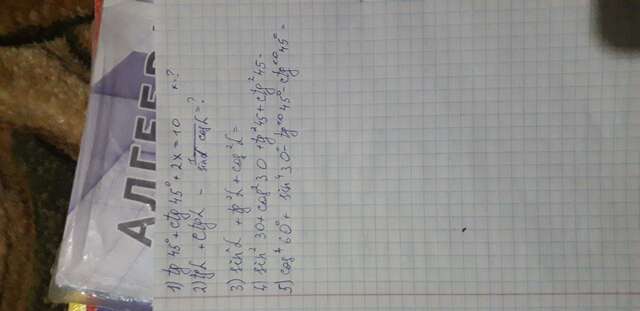 АЛГЕБР
1) tg 45° + ctg 45° + 2x = 10 x-?
2) tg α + ctg α - 1/(sin α cos α) = ?
3) sin² α + tg² α + cos² α =
4. sin² 30 + cos² 30 + tg² 45 + ctg² 45 -
5) cos⁴ 60° + sin⁴ 30° - tg¹⁰ 45° - ctg¹⁰ 45° =